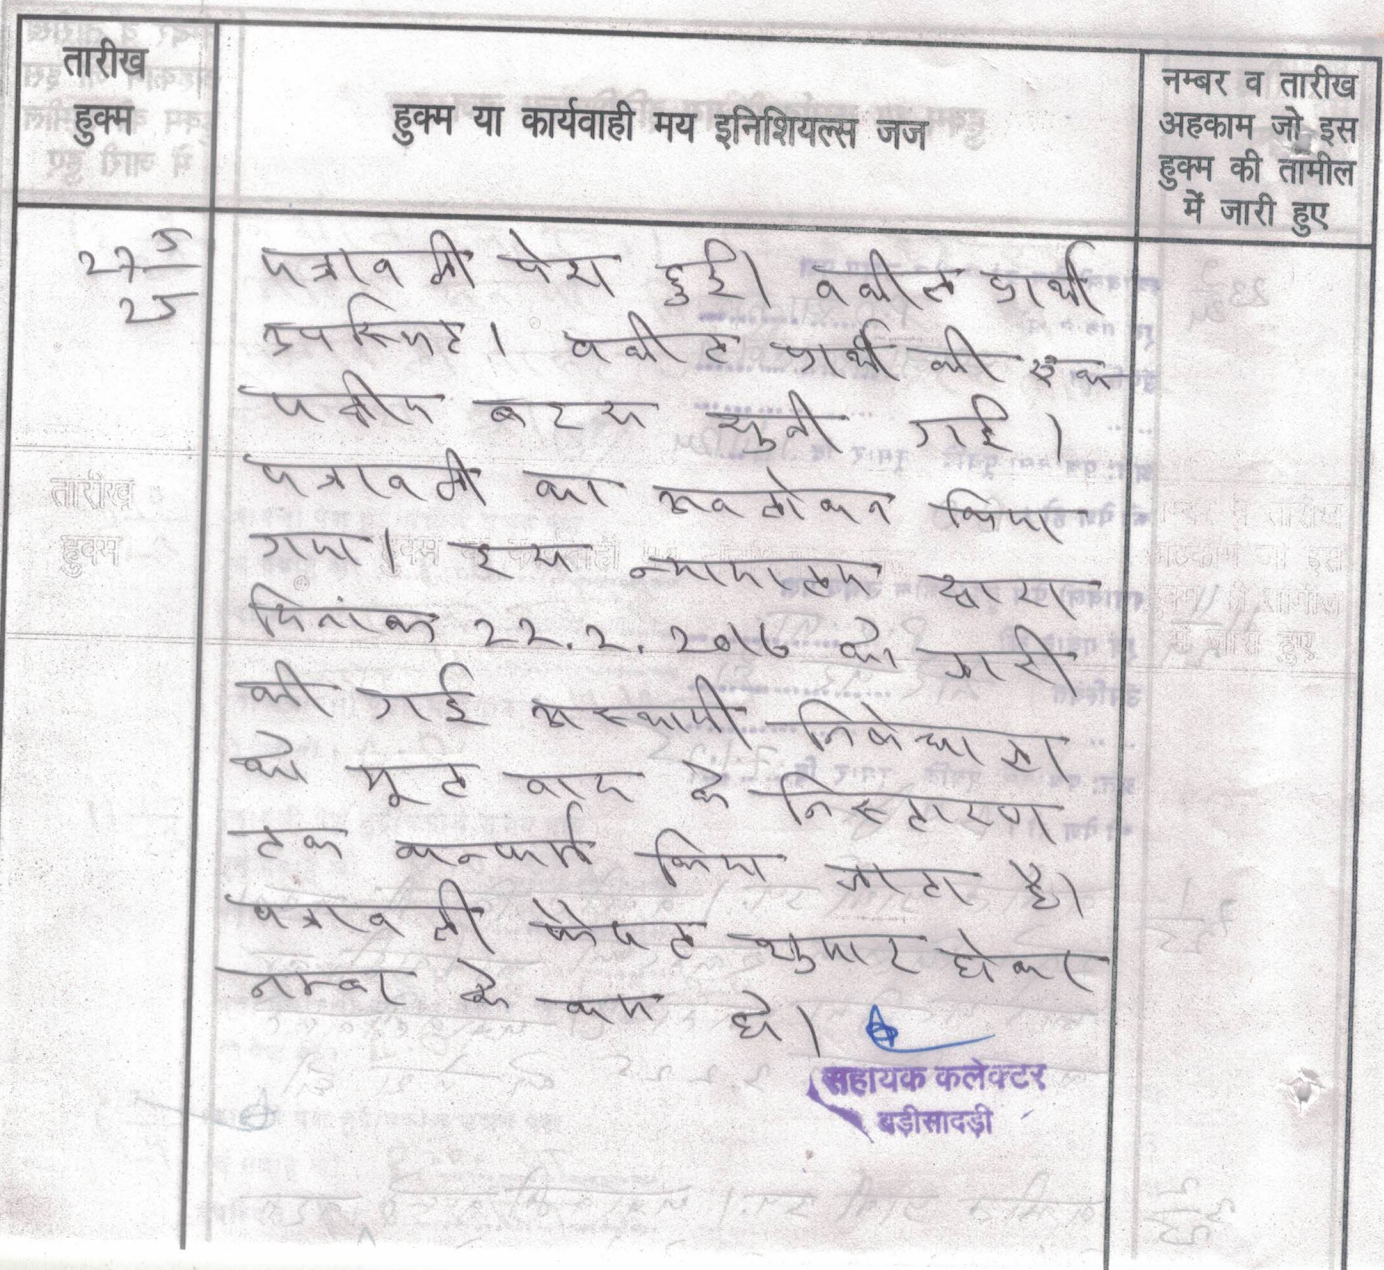 तारीख
हुक्म
हुक्म या कार्यवाही मय इनिशियल्स जज
नम्बर व तारीख
अहकाम जो इस
हुक्म की तामील
में जारी हुए
27 5/25
पत्रावली पेश हुई। वकील प्रार्थी
उपस्थित। वकील प्रार्थी की एक
पक्षीय बहस सुनी गई।
पत्रावली का अवलोकन किया
गया। इस न्यायालय द्वारा
दिनांक 22.2.2016 को जारी
की गई अस्थायी निषेधाज्ञा
को मूल वाद के निस्तारण
तक कन्फर्म किया जाता है।
पत्रावली फैसल शुमार होकर
नम्बर से कम हो।
सहायक कलेक्टर
बड़ीसादड़ी